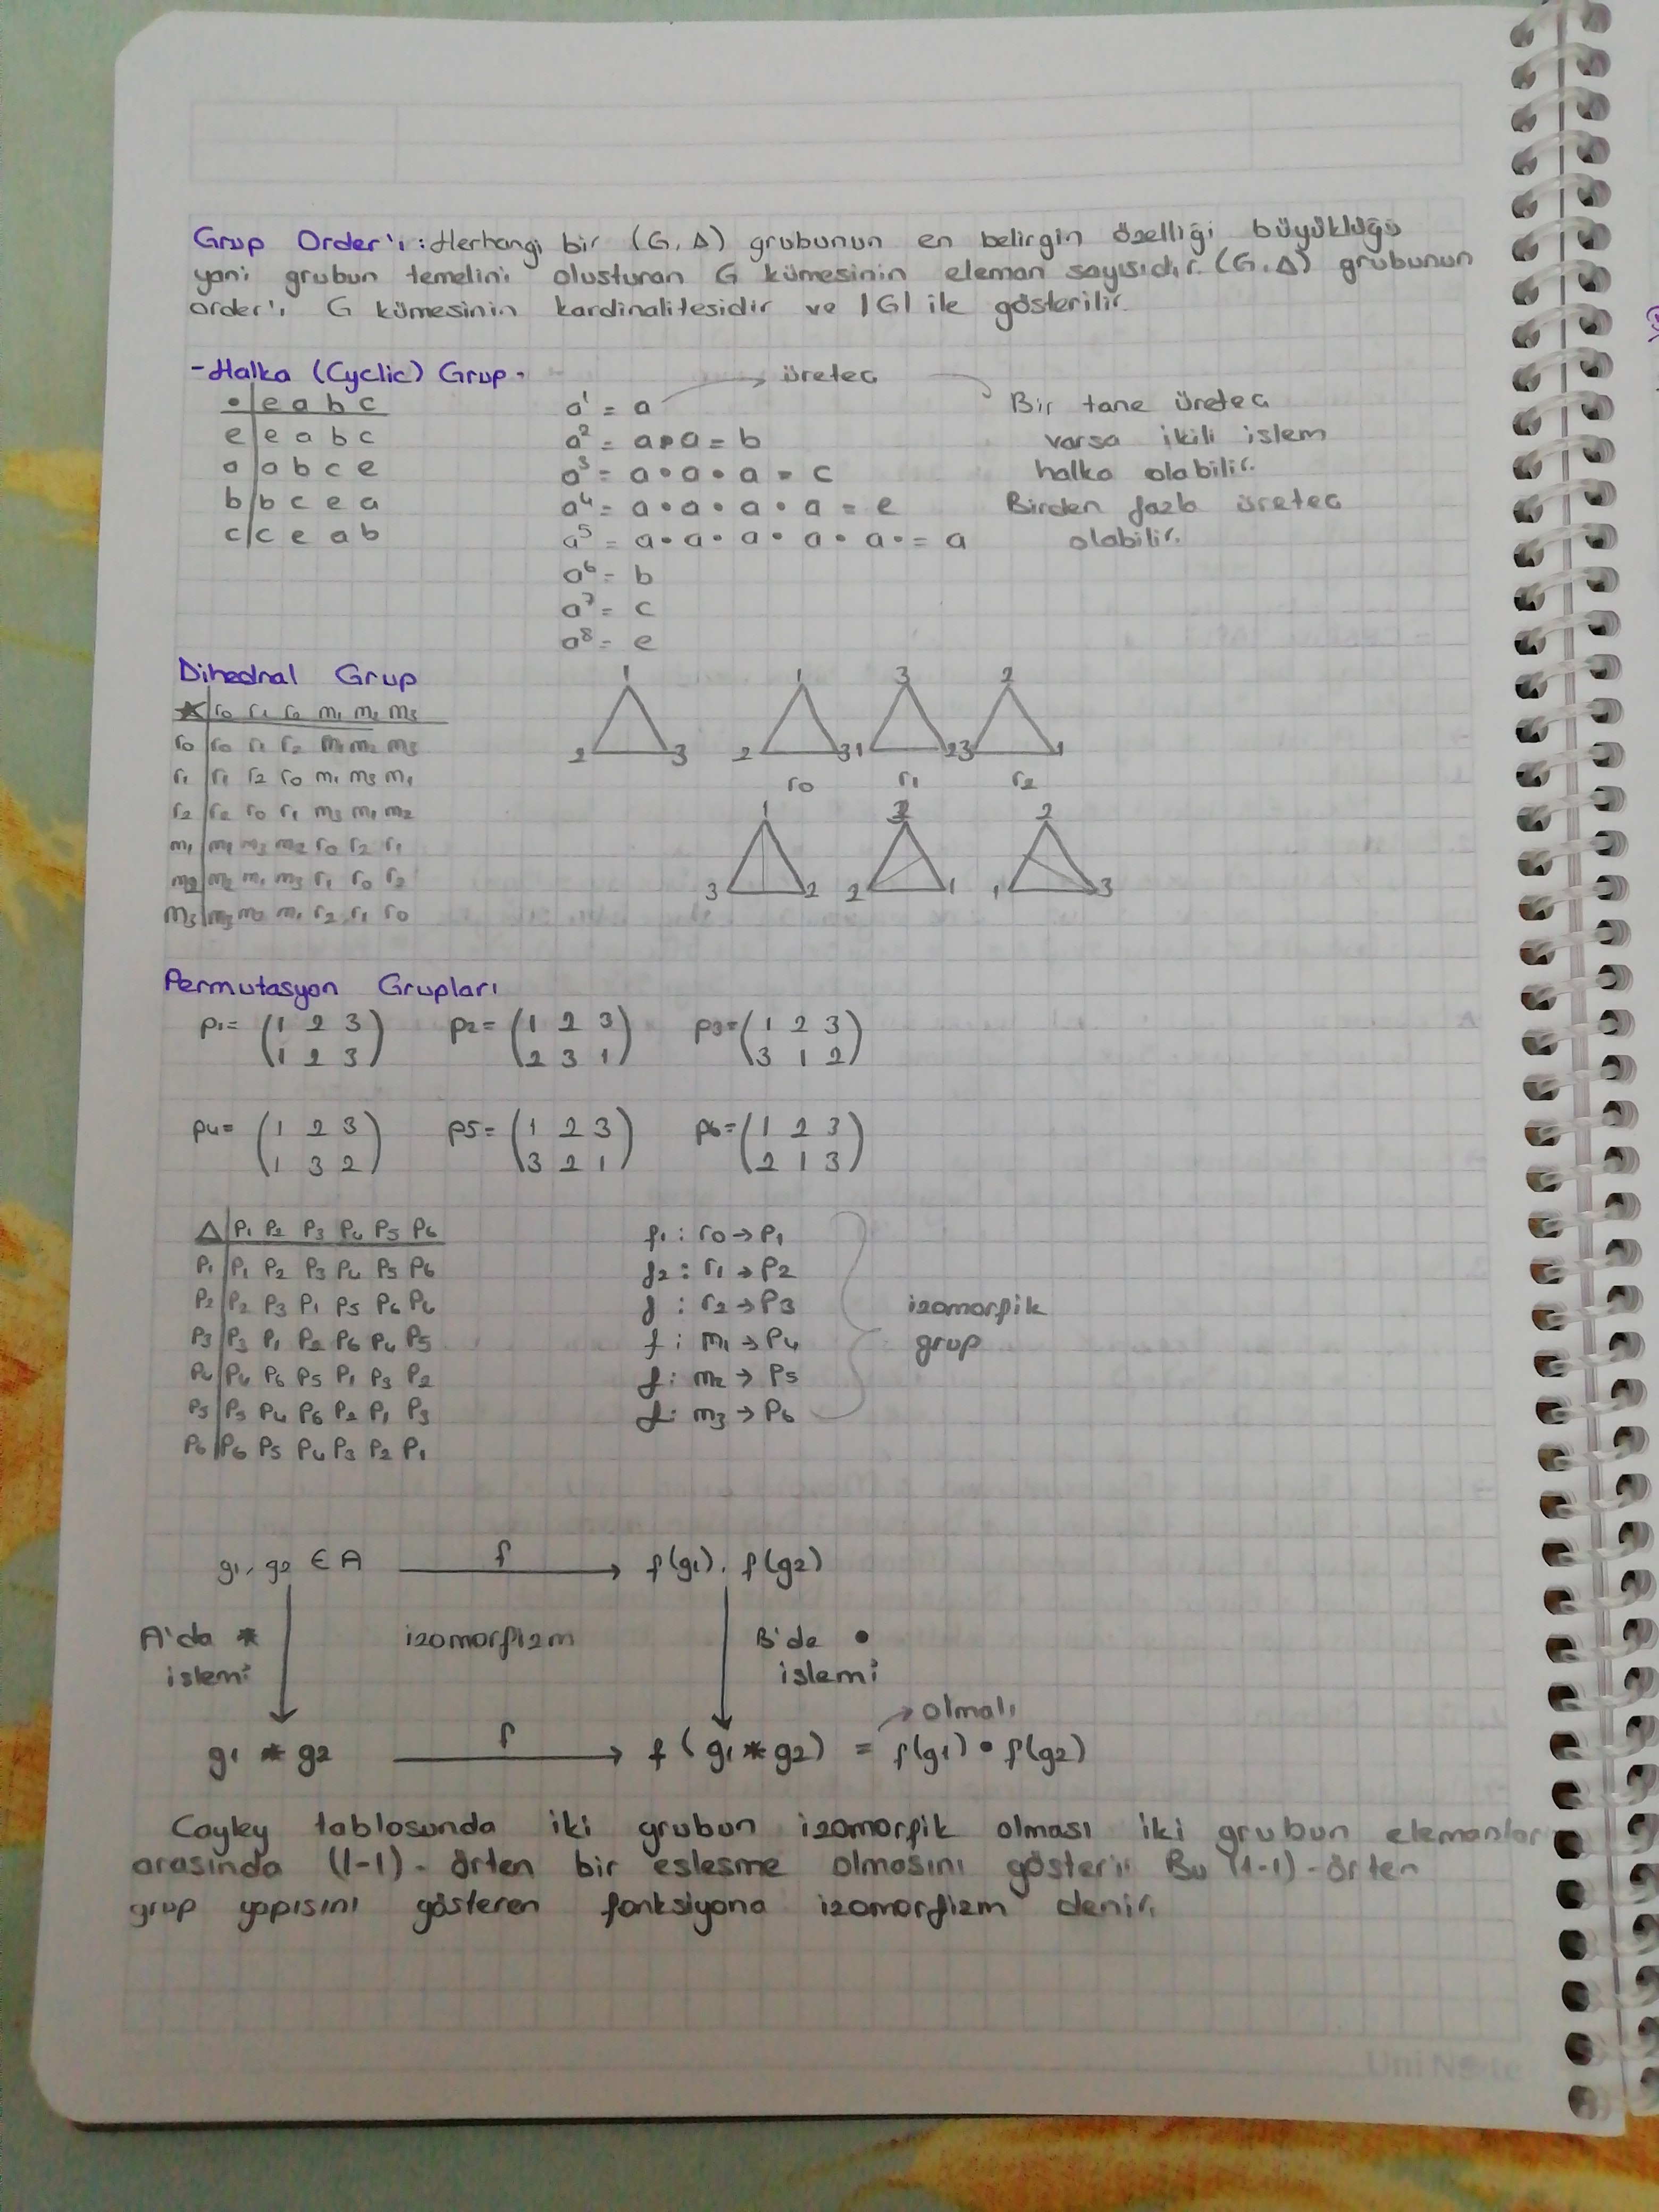 Grup Order'ı : Herhangi bir (G, Δ) grubunun en belirgin özelliği büyüklüğü
yani grubun temelini olusturan G kümesinin eleman sayısıdır. (G, Δ) grubunun
order'ı G kümesinin kardinalitesidir ve |G| ile gösterilir.
- Halka (Cyclic) Grup -
üretec
• | e a b c
e | e a b c
a | a b c e
b | b c e a
c | c e a b
a¹ = a
a² = a•a = b
a³ = a•a•a = c
a⁴ = a•a•a•a = e
a⁵ = a•a•a•a•a• = a
a⁶ = b
a⁷ = c
a⁸ = e
Bir tane üretec
varsa ikili islem
halka olabilir.
Birden fazla üretec
olabilir.
Dihedral Grup
★ | r0 r1 r2 m1 m2 m3
r0 | r0 r1 r2 m1 m2 m3
r1 | r1 r2 r0 m1 m3 m1
r2 | r2 r0 r1 m3 m1 m2
m1 | m1 m3 m2 r0 r2 r1
m2 | m2 m1 m3 r1 r0 r2
m3 | m3 m2 m1 r2 r1 r0
1 1 3 2
2 3 2 3 1 2 3 1
r0 r1 r2
1 3 2
3 2 2 1 1 3
Permutasyon Grupları
p1 = (1 2 3) p2 = (1 2 3) p3 = (1 2 3)
(1 2 3) (2 3 1) (3 1 2)
p4 = (1 2 3) p5 = (1 2 3) p6 = (1 2 3)
(1 3 2) (3 2 1) (2 1 3)
Δ | P1 P2 P3 P4 P5 P6
P1 | P1 P2 P3 P4 P5 P6
P2 | P2 P3 P1 P5 P6 P4
P3 | P3 P1 P2 P6 P4 P5
P4 | P4 P6 P5 P1 P3 P2
P5 | P5 P4 P6 P2 P1 P3
P6 | P6 P5 P4 P3 P2 P1
f1 : r0 → P1
f2 : r1 → P2
f : r2 → P3
f : m1 → P4
f : m2 → P5
f : m3 → P6
izomorfik
grup
g1, g2 ∈ A f f(g1), f(g2)
A'da * izomorfizm B'de •
islemi islemi
olmalı
g1 * g2 f f(g1 * g2) = f(g1) • f(g2)
Cayley tablosunda iki grubun izomorfik olması iki grubun elemanlar
arasında (1-1) - örten bir eslesme olmasını gösterir. Bu (1-1) - örten
grup yapısını gösteren fonksiyona izomorfizm denir.
Uni Note